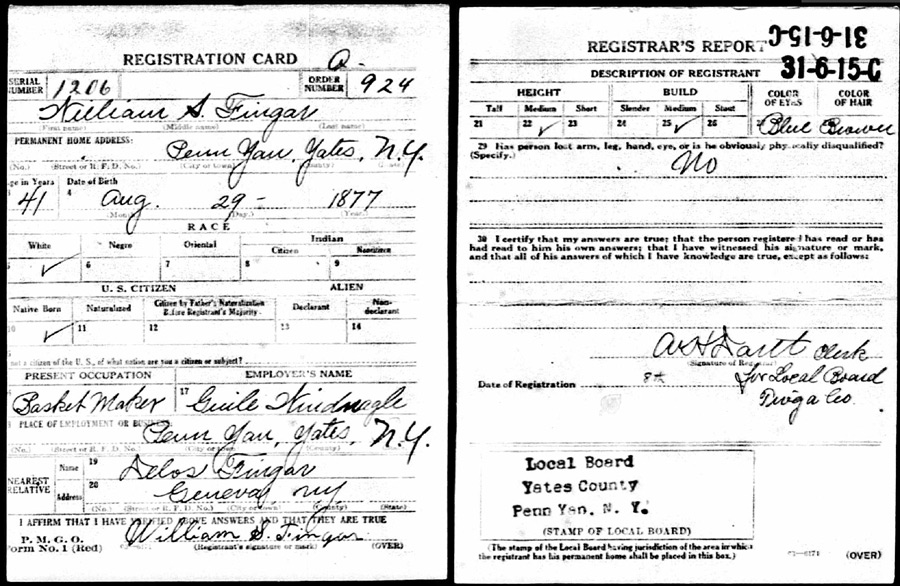 REGISTRATION CARD
SERIAL NUMBER 1206 ORDER NUMBER 924
William S. Fingar
(First name) (Middle name) (Last name)
PERMANENT HOME ADDRESS:
Penn Yan, Yates, N.Y.
(No.) (Street or R. F. D. No.) (City or town) (County) (State)
Age in Years Date of Birth
41 Aug. 29- 1877
(Month.) (Day.) (Year.)
RACE
White Negro Oriental Indian
Citizen Noncitizen
5 ✓ 6 7 8 9
U. S. CITIZEN ALIEN
Native Born Naturalized Citizen by Father's Naturalization Before Registrant's Majority Declarant Non-declarant
10 ✓ 11 12 13 14
not a citizen of the U. S., of what nation are you a citizen or subject?
PRESENT OCCUPATION EMPLOYER'S NAME
Basket Maker 17 Guile Windnagle
PLACE OF EMPLOYMENT OR BUSINESS:
Penn Yan, Yates, N.Y.
(No.) (Street or R. F. D. No.) (City or town) (County) (State)
NEAREST RELATIVE Name 19 Delos Fingar
Address 20 Geneva, NY
(No.) (Street or R. F. D. No.) (City or town) (County) (State)
I AFFIRM THAT I HAVE VERIFIED ABOVE ANSWERS AND THAT THEY ARE TRUE
P. M. G. O.
Form No. 1 (Red) William S. Fingar
(Registrant's signature or mark) (OVER)
REGISTRAR'S REPORT 31-6-15-C
31-6-15-C
DESCRIPTION OF REGISTRANT
HEIGHT BUILD COLOR OF EYES COLOR OF HAIR
Tall Medium Short Slender Medium Stout
21 22 ✓ 23 24 25 ✓ 26 27 Blue Brown
29 Has person lost arm, leg, hand, eye, or is he obviously physically disqualified?
(Specify.) No
30 I certify that my answers are true; that the person registered has read or has
had read to him his own answers; that I have witnessed his signature or mark,
and that all of his answers of which I have knowledge are true, except as follows:
Clerk
(Signature of Registrar)
Date of Registration for Local Board
Tioga Co.
Local Board
Yates County
Penn Yan, N. Y.
(STAMP OF LOCAL BOARD)
(The stamp of the Local Board having jurisdiction of the area in which
the registrant has his permanent home shall be placed in this box.)
(OVER)